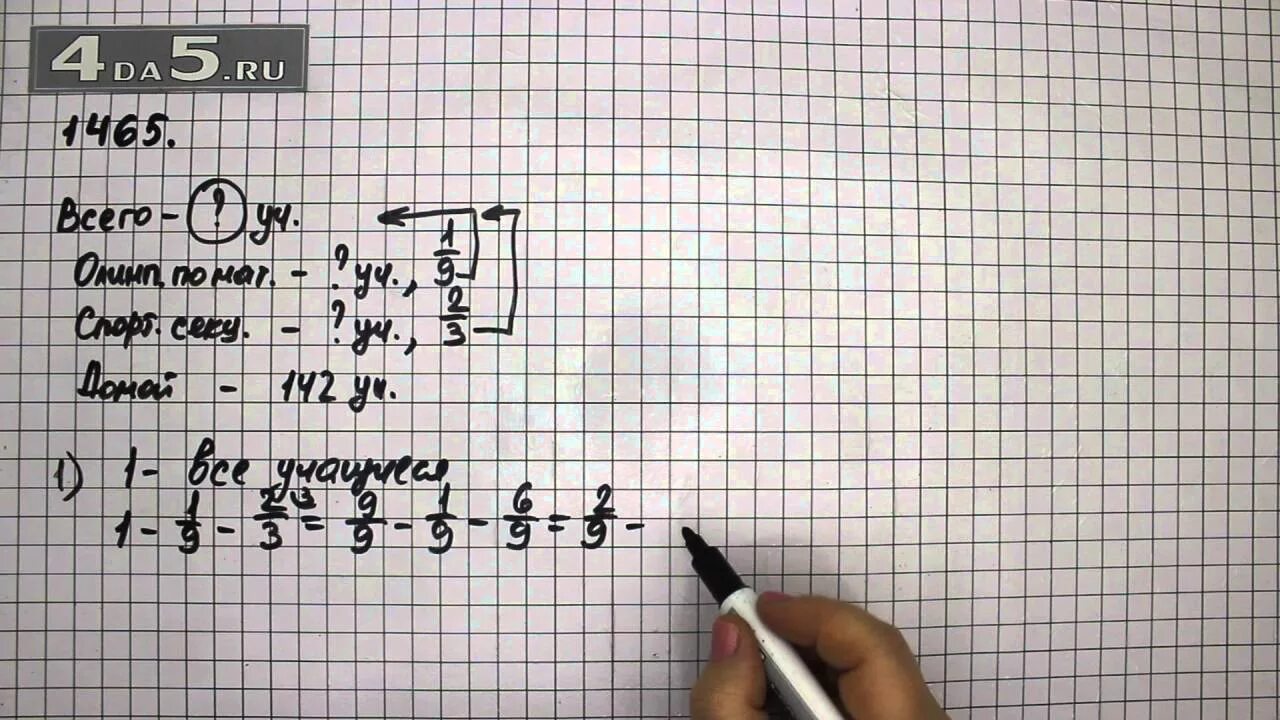 4DA5.RU
1465.
Всего - ? уч.
Олимп. по мат. - ? уч., 1/9
Спорт. секц. - ? уч., 2/3
Домой - 142 уч.
1) 1 - все учащиеся
1 - 1/9 - 2/3 \3 = 9/9 - 1/9 - 6/9 = 2/9 -